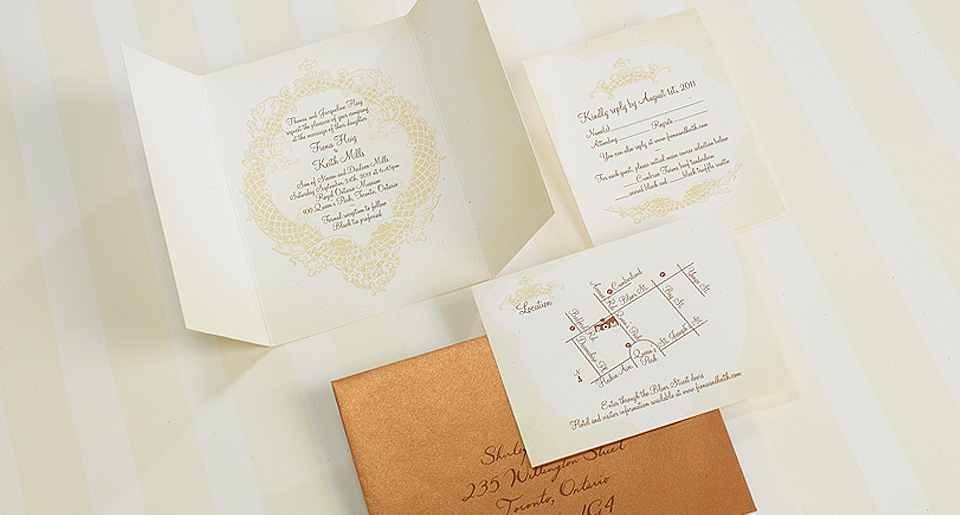 Thomas and Jacqueline Haig
request the pleasure of your company
at the marriage of their daughter
Fiona Haig
to
Keith Mills
Son of Steven and Darleen Mills
Saturday September 24th, 2011 at 6:45pm
Royal Ontario Museum
100 Queen's Park, Toronto, Ontario
Formal reception to follow
Black tie preferred
Kindly reply by August 1st, 2011
Name(s) Regrets
Attending
You can also reply at www.fionaandkeith.com
For each guest, please initial main course selection below
Cumbrae Farms beef tenderloin
seared black cod black truffle risotto
Location
Cumberland
Bloor St.
Bedford Rd.
Devonshire Pl.
Queen's Park
Bay St.
Yonge St.
St. Joseph St.
Queen's Park
Hoskin Ave.
N
Enter through the Bloor Street doors
Hotel and visitor information available at www.fionaandkeith.com
235 Wellington Street
Toronto, Ontario
1G4